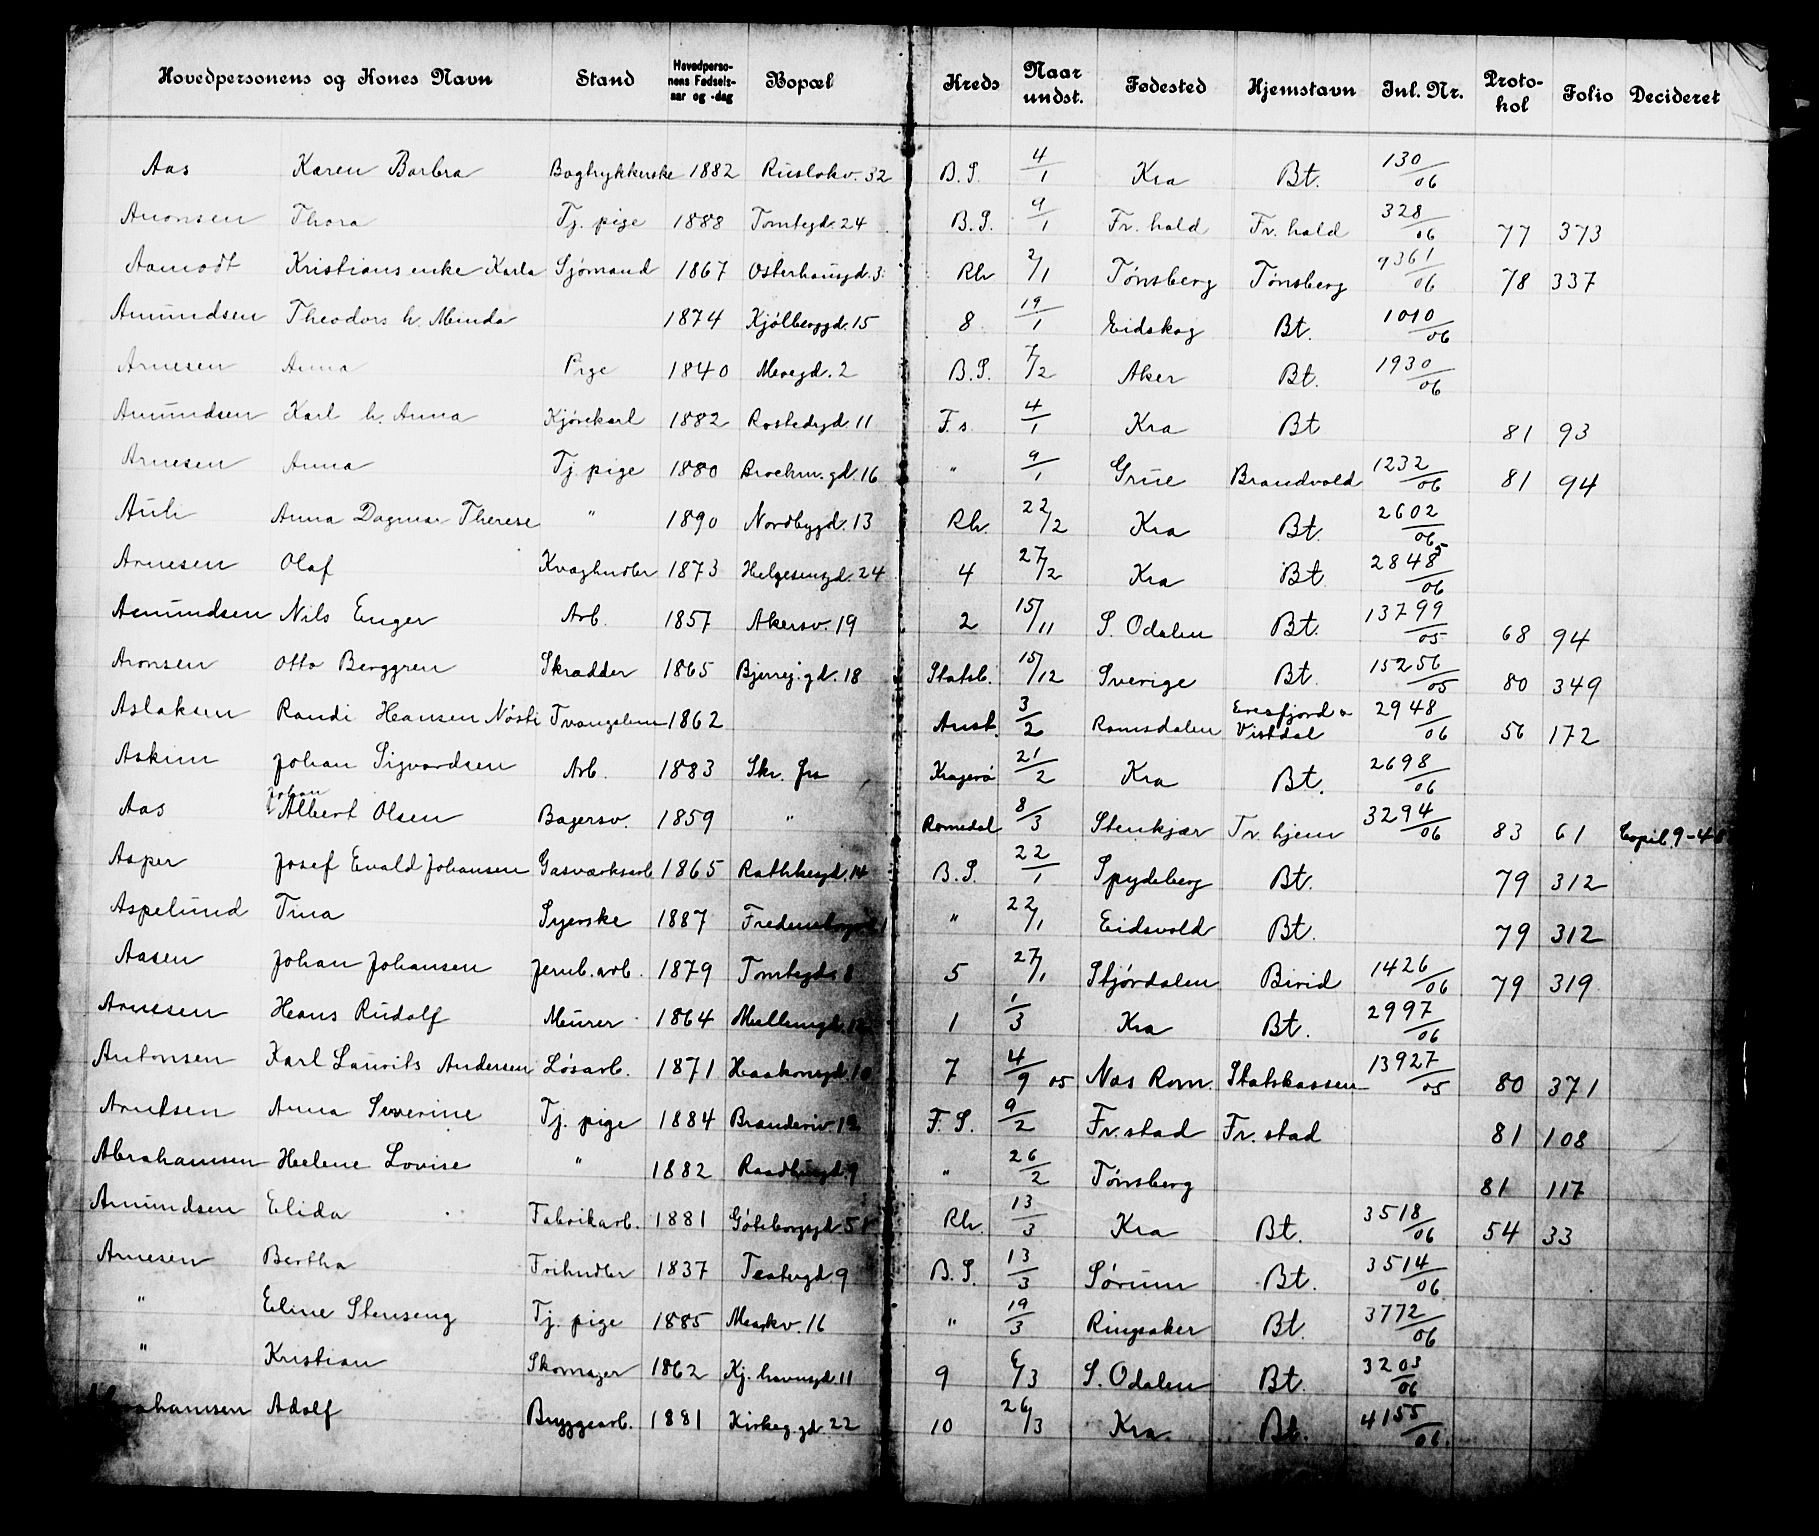 Hovedpersonens og Kones Navn Stand Hovedperso-nens Fødsels-aar og -dag Bopæl Kreds Naar undst. Fødested Hjemstavn Inl. Nr. Proto-kol Folio Decideret
Aas Karen Barbra Bogtrykkerske 1882 Rusløkv. 32 B.S. 4/1 Kra Bt. 130/06
Aronsen Thora Tj. pige 1888 Tomtegd. 24 B.S. 9/1 Fr.hald Fr.hald 328/06 77 373
Aamodt Kristians enke Karla Sjømand 1867 Osterhausgd. 3 Rh 2/1 Tønsberg Tønsberg 9361/06 78 337
Amundsen Theodors h. Minda 1874 Kjølberggd. 15 8 19/1 Eidskog Bt. 1010/06
Arnesen Anna Pige 1840 2 B.S. 7/2 Aker Bt. 1930/06
Amundsen Karl h. Anna Kjørekarl 1882 Rostedgd. 11 F.s. 4/1 Kra Bt 81 93
Arnesen Anna Tj. pige 1880 Brockm.gd. 16 " 9/1 Grue Brandvold 1232/06 81 94
Anna Dagmar Therese " 1890 Nordbygd. 13 Rh. 22/2 Kra Bt. 2602/06
Arnesen Olaf Kvæghndlr 1873 Helgesensgd. 24 4 27/2 Kra Bt. 2848/06
Amundsen Nils Enger Arb. 1857 Akersv. 19 2 15/11 S. Odalen Bt. 13799/05 68 94
Aronsen Otto Berggren Skrædder 1865 Bjerrej.gd. 18 Statsb. 15/12 Sverige Bt. 15256/05 80 349
Aslaksen Randi Hansen Nøsti Tvangslem 1862 Anst. 3/2 Romsdalen Eresfjord o Vistdal 2948/06 56 172
Askim Johan Sigvardsen Arb. 1883 Skr. fra Kragerø 21/2 Kra Bt. 2698/06
Aas Johan Albert Olsen Bagersv. 1859 " Romedal 8/3 Stenkjær Fr. hjem 3294/06 83 61 9-4
Asper Josef Evald Johansen Gasværksarb 1865 Rathkesgd. 14 B.S. 22/1 Spydeberg Bt. 79 312
Aspelund Tina Syerske 1887 " 22/1 Eidsvold Bt. 79 312
Aasen Johan Johansen Jernb.arb. 1879 Tomtegd. 8 5 27/1 Stjørdalen Birid 1426/06 79 319
Arnesen Hans Rudolf Murer 1864 1 1/3 Kra Bt. 2997/06
Antonsen Karl Laurits Andersen Løsarb. 1871 Haakonsgd. 10 7 4/9 05 Næs Rom. Statskassen 13927/05 80 371
Arntsen Anna Severine Tj. pige 1884 F.S. 9/2 Fr.stad Fr.stad 81 108
Abrahamsen Helene Lovise " 1882 Raadhusgd. 9 " 26/2 Tønsberg 81 117
Amundsen Elida Fabrikarb. 1881 Gøteborgsgd. 51 Rh. 13/3 Kra Bt. 3518/06 54 33
Arnesen Bertha Frihndlr 1837 9 B.S. 13/3 Sørum Bt. 3514/06
" Eline Stenseng Tj. pige 1885 Markv. 16 " 19/3 Ringsaker Bt. 3772/06
" Kristian Skomager 1862 Kj.havnsgd. 11 9 6/3 S. Odalen Bt. 3203/06
Abrahamsen Adolf Bryggearb. 1881 Kirkeg.gd. 22 10 26/3 Kra. Bt. 4155/06